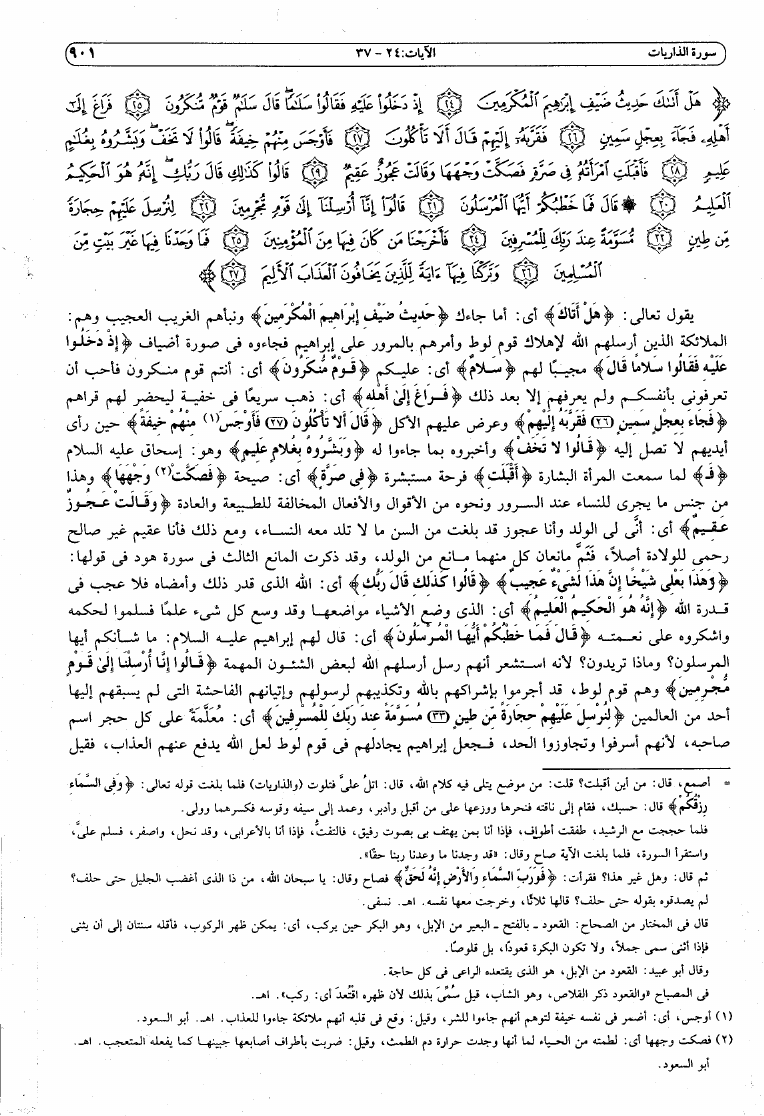 سورة الذاريات الآيات: ٢٤ - ٣٧ ٩٠١
﴿ هَلْ أَتَىٰكَ حَدِيثُ ضَيْفِ إِبْرَٰهِيمَ ٱلْمُكْرَمِينَ ۝٢٤ إِذْ دَخَلُوا۟ عَلَيْهِ فَقَالُوا۟ سَلَٰمًا ۖ قَالَ سَلَٰمٌ قَوْمٌ مُّنكَرُونَ ۝٢٥ فَرَاغَ إِلَىٰٓ
أَهْلِهِۦ فَجَآءَ بِعِجْلٍ سَمِينٍ ۝٢٦ فَقَرَّبَهُۥٓ إِلَيْهِمْ قَالَ أَلَا تَأْكُلُونَ ۝٢٧ فَأَوْجَسَ مِنْهُمْ خِيفَةً ۖ قَالُوا۟ لَا تَخَفْ ۖ وَبَشَّرُوهُ بِغُلَٰمٍ
عَلِيمٍ ۝٢٨ فَأَقْبَلَتِ ٱمْرَأَتُهُۥ فِى صَرَّةٍ فَصَكَّتْ وَجْهَهَا وَقَالَتْ عَجُوزٌ عَقِيمٌ ۝٢٩ قَالُوا۟ كَذَٰلِكِ قَالَ رَبُّكِ ۖ إِنَّهُۥ هُوَ ٱلْحَكِيمُ
ٱلْعَلِيمُ ۝٣٠ ۞ قَالَ فَمَا خَطْبُكُمْ أَيُّهَا ٱلْمُرْسَلُونَ ۝٣١ قَالُوٓا۟ إِنَّآ أُرْسِلْنَآ إِلَىٰ قَوْمٍ مُّجْرِمِينَ ۝٣٢ لِنُرْسِلَ عَلَيْهِمْ حِجَارَةً
مِّن طِينٍ ۝٣٣ مُّسَوَّمَةً عِندَ رَبِّكَ لِلْمُسْرِفِينَ ۝٣٤ فَأَخْرَجْنَا مَن كَانَ فِيهَا مِنَ ٱلْمُؤْمِنِينَ ۝٣٥ فَمَا وَجَدْنَا فِيهَا غَيْرَ بَيْتٍ مِّنَ
ٱلْمُسْلِمِينَ ۝٣٦ وَتَرَكْنَا فِيهَآ ءَايَةً لِّلَّذِينَ يَخَافُونَ ٱلْعَذَابَ ٱلْأَلِيمَ ۝٣٧ ﴾
يقول تعالى: ﴿هَلْ أَتَاكَ﴾ أى: أما جاءك ﴿حَدِيثُ ضَيْفِ إِبْرَاهِيمَ الْمُكْرَمِينَ﴾ ونبأهم الغريب العجيب وهم:
الملائكة الذين أرسلهم الله لإهلاك قوم لوط وأمرهم بالمرور على إبراهيم فجاءوه فى صورة أضياف ﴿إِذْ دَخَلُوا
عَلَيْهِ فَقَالُوا سَلامًا قَالَ﴾ مجيبًا لهم ﴿سَلامٌ﴾ أى: عليكم ﴿قَوْمٌ مُّنكَرُونَ﴾ أى: أنتم قوم منكرون فأحب أن
تعرفونى بأنفسكم ولم يعرفهم إلا بعد ذلك ﴿فَرَاغَ إِلَىٰ أَهْلِهِ﴾ أى: ذهب سريعًا فى خفية ليحضر لهم قراهم
﴿فَجَاءَ بِعِجْلٍ سَمِينٍ (٢٦) فَقَرَّبَهُ إِلَيْهِمْ﴾ وعرض عليهم الأكل ﴿قَالَ أَلا تَأْكُلُونَ (٢٧) فَأَوْجَسَ(١) مِنْهُمْ خِيفَةً﴾ حين رأى
أيديهم لا تصل إليه ﴿قَالُوا لا تَخَفْ﴾ وأخبروه بما جاءوا له ﴿وَبَشَّرُوهُ بِغُلامٍ عَلِيمٍ﴾ وهو: إسحاق عليه السلام
﴿فَـ﴾ لما سمعت المرأة البشارة ﴿أَقْبَلَتِ﴾ فرحة مستبشرة ﴿فِى صَرَّةٍ﴾ أى: صيحة ﴿فَصَكَّتْ(٢) وَجْهَهَا﴾ وهذا
من جنس ما يجرى للنساء عند السرور ونحوه من الأقوال والأفعال المخالفة للطبيعة والعادة ﴿وَقَالَتْ عَجُوزٌ
عَقِيمٌ﴾ أى: أنَّى لى الولد وأنا عجوز قد بلغت من السن ما لا تلد معه النساء، ومع ذلك فأنا عقيم غير صالح
رحمى للولادة أصلاً، فثَمَّ مانعان كل منهما مانع من الولد، وقد ذكرت المانع الثالث فى سورة هود فى قولها:
﴿وَهَذَا بَعْلِى شَيْخًا إِنَّ هَذَا لَشَىْءٌ عَجِيبٌ﴾ ﴿قَالُوا كَذَلِكِ قَالَ رَبُّكِ﴾ أى: الله الذى قدر ذلك وأمضاه فلا عجب فى
قدرة الله ﴿إِنَّهُ هُوَ الْحَكِيمُ الْعَلِيمُ﴾ أى: الذى وضع الأشياء مواضعها وقد وسع كل شىء علمًا فسلموا لحكمه
واشكروه على نعمته ﴿قَالَ فَمَا خَطْبُكُمْ أَيُّهَا الْمُرْسَلُونَ﴾ أى: قال لهم إبراهيم عليه السلام: ما شأنكم أيها
المرسلون؟ وماذا تريدون؟ لأنه استشعر أنهم رسل أرسلهم الله لبعض الشئون المهمة ﴿قَالُوا إِنَّا أُرْسِلْنَا إِلَىٰ قَوْمٍ
مُّجْرِمِينَ﴾ وهم قوم لوط، قد أجرموا بإشراكهم بالله وتكذيبهم لرسولهم وإتيانهم الفاحشة التى لم يسبقهم إليها
أحد من العالمين ﴿لِنُرْسِلَ عَلَيْهِمْ حِجَارَةً مِّن طِينٍ (٣٣) مُسَوَّمَةً عِندَ رَبِّكَ لِلْمُسْرِفِينَ﴾ أى: مُعَلَّمَةً على كل حجر اسم
صاحبه، لأنهم أسرفوا وتجاوزوا الحد، فجعل إبراهيم يجادلهم فى قوم لوط لعل الله يدفع عنهم العذاب، فقيل
= أصمع، قال: من أين أقبلت؟ قلت: من موضع يتلى فيه كلام الله، قال: اتلُ علىَّ فتلوت (والذاريات) فلما بلغت قوله تعالى: ﴿وَفِى السَّمَاءِ
رِزْقُكُمْ﴾ قال: حسبك، فقام إلى ناقته فنحرها ووزعها على من أقبل وأدبر، وعمد إلى سيفه وقوسه فكسرهما وولى.
فلما حججت مع الرشيد، طفقت أطواف، فإذا أنا بمن يهتف بى بصوت رقيق، فالتفتُّ، فإذا أنا بالأعرابى، وقد نحل، واصفر، فسلم علىَّ،
واستقرأ السورة، فلما بلغت الآية صاح وقال: «قد وجدنا ما وعدنا ربنا حقًا».
ثم قال: وهل غير هذا؟ فقرأت: ﴿فَوَرَبِّ السَّمَاءِ وَالأَرْضِ إِنَّهُ لَحَقٌّ﴾ فصاح وقال: يا سبحان الله، من ذا الذى أغضب الجليل حتى حلف؟
لم يصدقوه بقوله حتى حلف؟ قالها ثلاثًا، وخرجت معها نفسه. اهـ. نسفى.
قال فى المختار من الصحاح: القعود ـ بالفتح ـ البعير من الإبل، وهو البكر حين يركب، أى: يمكن ظهر الركوب، فأقله سنتان إلى أن يثنى
فإذا أثنى سمى جملاً، ولا تكون البكرة قعودًا، بل قلوصًا.
وقال أبو عبيد: القعود من الإبل، هو الذى يقتعده الراعى فى كل حاجة.
فى المصباح «والقعود ذكر القلاص، وهو الشاب، قيل سُمِّىَ بذلك لأن ظهره اقْتُعدَ أى: ركب». اهـ.
(١) أوجس، أى: أضمر فى نفسه خيفة لتوهم أنهم جاءوا للشر، وقيل: وقع فى قلبه أنهم ملائكة جاءوا للعذاب. اهـ. أبو السعود.
(٢) فصكت وجهها أى: لطمته من الحياء لما أنها وجدت حرارة دم الطمث، وقيل: ضربت بأطراف أصابعها جبينها كما يفعله المتعجب. اهـ.
أبو السعود.